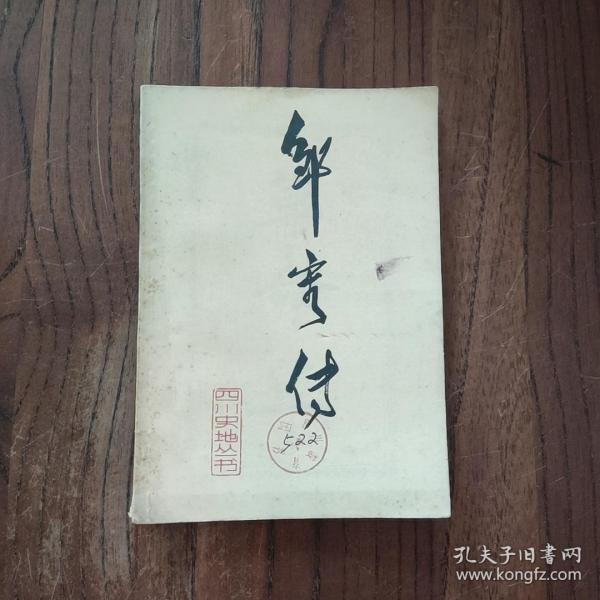 邹容传
四川史地丛书
522
孔夫子旧书网
www.kongfz.com